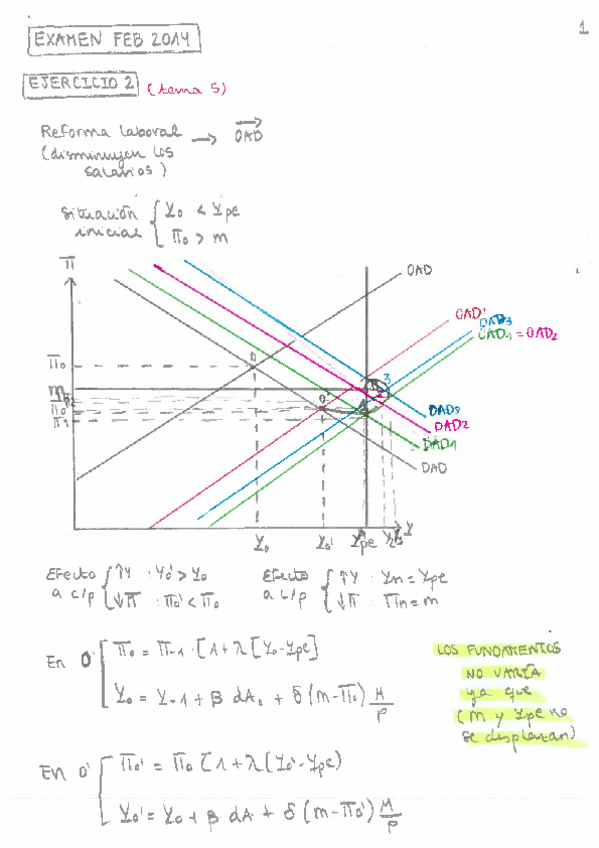 1
EXAMEN FEB 2014
EJERCICIO 2 (tema 5)
Reforma laboral → OAD
(disminuyen los
salarios)
Situación { Y₀ < Ype
inicial { Π₀ > m
Π
OAD
OAD'
OAD₃
OAD₁ = OAD₂
Π₀
m
Π₀'
Π₁
0
0'
1
2
3
DAD₃
DAD₂
DAD₁
DAD
Y₀ Y₀' Ype Y
Efecto { ↑Y : Y₀' > Y₀
a c/p { ↓Π : Π₀' < Π₀
Efecto { ↑Y : Yn = Ype
a L/p { ↓Π : Πn = m
En 0 [ Π₀ = Π-1 · [1 + λ[Y₀ - Ype]
Y₀ = Y-1 + β dA₀ + δ(m - Π₀) M/P
LOS FUNDAMENTOS
NO VARÍA
ya que
(m y Ype no
se desplazan)
En 0' [ Π₀' = Π₀ [1 + λ[Y₀' - Ype)
Y₀' = Y₀ + β dA + δ(m - Π₀') M/P